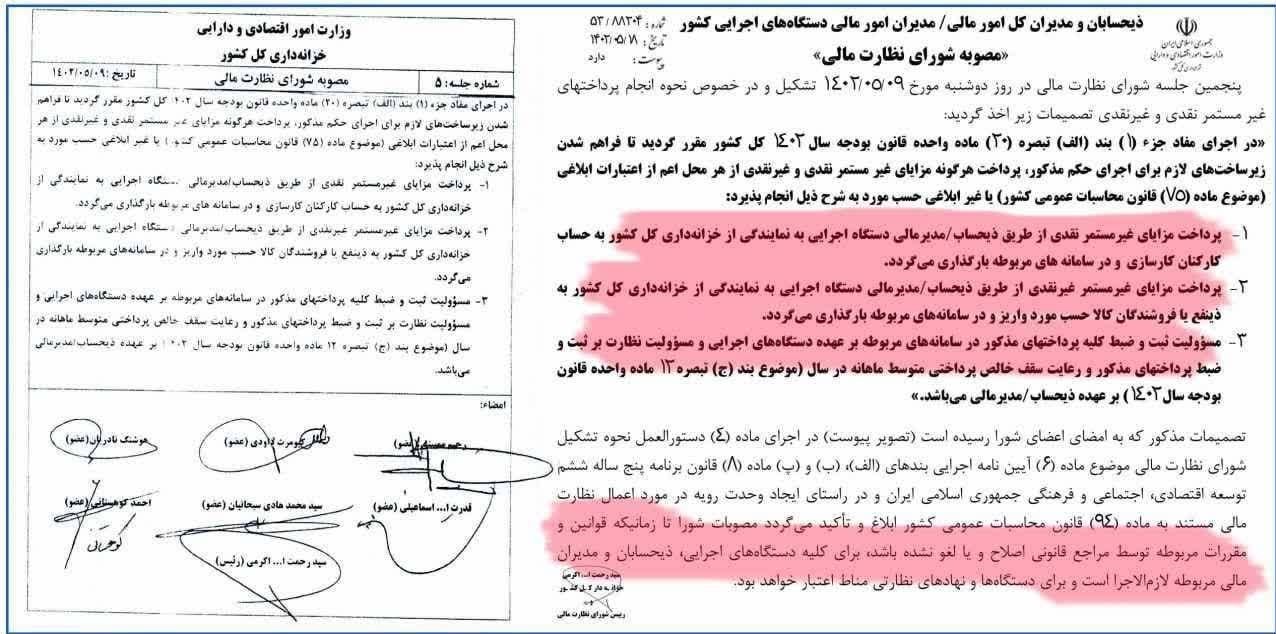 ذیحسابان و مدیران کل امور مالی/ مدیران امور مالی دستگاه‌های اجرایی کشور
«مصوبه شورای نظارت مالی»
شماره: ۵۳/۸۸۳۰۴
تاریخ: ۱۴۰۲/۰۵/۱۸
پیوست: دارد
جمهوری اسلامی ایران
وزارت امور اقتصادی و دارایی
پنجمین جلسه شورای نظارت مالی در روز دوشنبه مورخ ۱۴۰۲/۰۵/۰۹ تشکیل و در خصوص نحوه انجام پرداختهای
غیر مستمر نقدی و غیرنقدی تصمیمات زیر اخذ گردید:
«در اجرای مفاد جزء (۱) بند (الف) تبصره (۲۰) ماده واحده قانون بودجه سال ۱۴۰۲ کل کشور مقرر گردید تا فراهم شدن
زیرساخت‌های لازم برای اجرای حکم مذکور، پرداخت هرگونه مزایای غیر مستمر نقدی و غیرنقدی از هر محل اعم از اعتبارات ابلاغی
(موضوع ماده (۷۵) قانون محاسبات عمومی کشور) یا غیر ابلاغی حسب مورد به شرح ذیل انجام پذیرد:
۱- پرداخت مزایای غیرمستمر نقدی از طریق ذیحساب/مدیرمالی دستگاه اجرایی به نمایندگی از خزانه‌داری کل کشور به حساب
کارکنان کارسازی و در سامانه های مربوطه بارگذاری می‌گردد.
۲- پرداخت مزایای غیرمستمر غیرنقدی از طریق ذیحساب/مدیرمالی دستگاه اجرایی به نمایندگی از خزانه‌داری کل کشور به
ذینفع یا فروشندگان کالا حسب مورد واریز و در سامانه‌های مربوطه بارگذاری می‌گردد.
۳- مسؤولیت ثبت و ضبط کلیه پرداختهای مذکور در سامانه‌های مربوطه بر عهده دستگاه‌های اجرایی و مسؤولیت نظارت بر ثبت و
ضبط پرداختهای مذکور و رعایت سقف خالص پرداختی متوسط ماهانه در سال (موضوع بند (ج) تبصره ۱۲ ماده واحده قانون
بودجه سال ۱۴۰۲) بر عهده ذیحساب/مدیرمالی می‌باشد.»
تصمیمات مذکور که به امضای اعضای شورا رسیده است (تصویر پیوست) در اجرای ماده (۴) دستورالعمل نحوه تشکیل
شورای نظارت مالی موضوع ماده (۶) آیین نامه اجرایی بندهای (الف)، (ب) و (پ) ماده (۸) قانون برنامه پنج ساله ششم
توسعه اقتصادی، اجتماعی و فرهنگی جمهوری اسلامی ایران و در راستای ایجاد وحدت رویه در مورد اعمال نظارت
مالی مستند به ماده (۹۴) قانون محاسبات عمومی کشور ابلاغ و تأکید می‌گردد مصوبات شورا تا زمانیکه قوانین و
مقررات مربوطه توسط مراجع قانونی اصلاح و یا لغو نشده باشد، برای کلیه دستگاه‌های اجرایی، ذیحسابان و مدیران
مالی مربوطه لازم‌الاجرا است و برای دستگاه‌ها و نهادهای نظارتی مناط اعتبار خواهد بود.
سید رحمت ا... اکرمی
خزانه دار کل کشور
و
رییس شورای نظارت مالی
وزارت امور اقتصادی و دارایی
خزانه‌داری کل کشور
شماره جلسه: ۵
مصوبه شورای نظارت مالی
تاریخ: ۱۴۰۲/۰۵/۰۹
در اجرای مفاد جزء (۱) بند (الف) تبصره (۲۰) ماده واحده قانون بودجه سال ۱۴۰۲ کل کشور مقرر گردید تا فراهم
شدن زیرساخت‌های لازم برای اجرای حکم مذکور، پرداخت هرگونه مزایای غیر مستمر نقدی و غیرنقدی از هر
محل اعم از اعتبارات ابلاغی (موضوع ماده (۷۵) قانون محاسبات عمومی کشور) یا غیر ابلاغی حسب مورد به
شرح ذیل انجام پذیرد:
۱- پرداخت مزایای غیرمستمر نقدی از طریق ذیحساب/مدیرمالی دستگاه اجرایی به نمایندگی از
خزانه‌داری کل کشور به حساب کارکنان کارسازی و در سامانه های مربوطه بارگذاری می‌گردد.
۲- پرداخت مزایای غیرمستمر غیرنقدی از طریق ذیحساب/مدیرمالی دستگاه اجرایی به نمایندگی از
خزانه‌داری کل کشور به ذینفع یا فروشندگان کالا حسب مورد واریز و در سامانه‌های مربوطه بارگذاری
می‌گردد.
۳- مسؤولیت ثبت و ضبط کلیه پرداختهای مذکور در سامانه‌های مربوطه بر عهده دستگاه‌های اجرایی و
مسؤولیت نظارت بر ثبت و ضبط پرداختهای مذکور و رعایت سقف خالص پرداختی متوسط ماهانه در
سال (موضوع بند (ج) تبصره ۱۲ ماده واحده قانون بودجه سال ۱۴۰۲) بر عهده ذیحساب/مدیرمالی
می‌باشد.
امضاء:
(عضو) کیومرث داودی (عضو) هوشنگ نادریان (عضو)
قدرت ا... اسماعیلی (عضو) سید محمد هادی سبحانیان (عضو) احمد کوهستانی (عضو)
سید رحمت ا... اکرمی (رئیس)